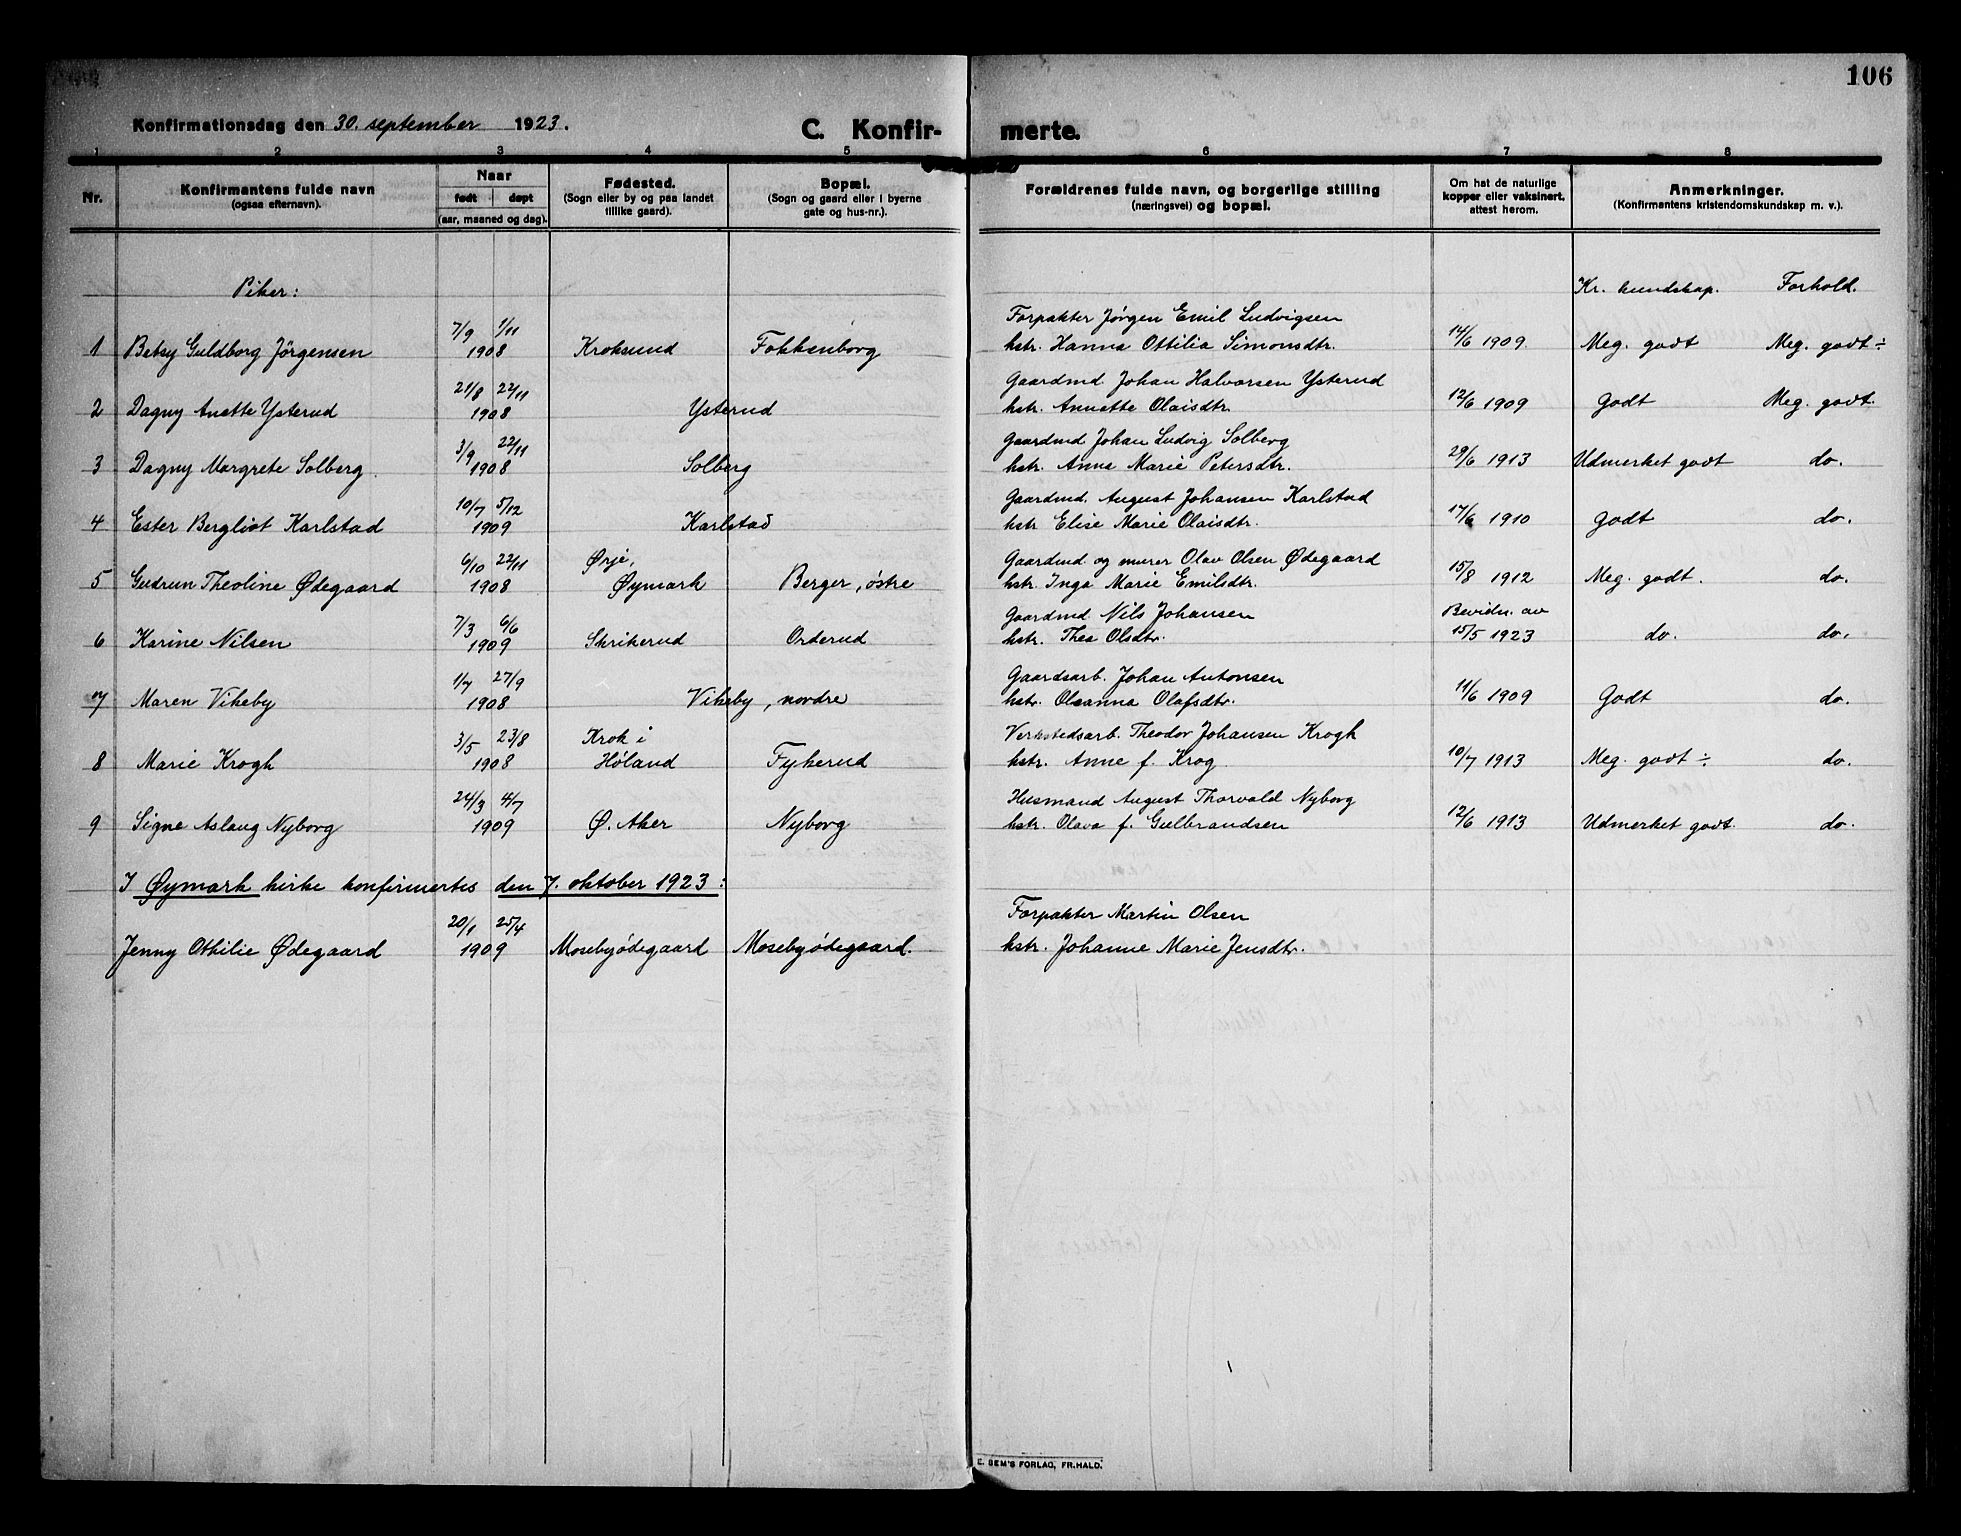 106
Konfirmationsdag den 30. september 1923.
C. Konfir- merte.
1 2 3 4 5 6 7 8
Nr.
Konfirmantens fulde navn
(ogsaa efternavn).
Naar
født døpt
(aar, maaned og dag).
Fødested.
(Sogn eller by og paa landet
tillike gaard).
Bopæl.
(Sogn og gaard eller i byerne
gate og hus-nr.).
Forældrenes fulde navn, og borgerlige stilling
(næringsvei) og bopæl.
Om hat de naturlige
kopper eller vaksinert,
attest herom.
Anmerkninger.
(Konfirmantens kristendomskundskap m. v.).
Piker: Kr. kundskap. Forhold.
7/9 1/11 Forpakter Jørgen Emil Ludvigsen
1 Betsy Guldborg Jörgensen 1908 Kroksund Fokkenborg hstr. Hanna Ottilia Simonsdtr. 14/6 1909 Meg. godt Meg. godt ÷
21/8 22/11 Gaardmd. Johan Halvorsen Ysterud
2 Dagny Anette Ysterud 1908 Ysterud hstr. Annette Olaisdtr. 12/6 1909 Godt Meg. godt.
3/9 22/11 Gaardmd Johan Ludvig Solberg
3 Dagny Margrete Solberg. 1908 Solberg hstr. Anna Marie Petersdtr. 29/6 1913 Udmerket godt do.
10/7 5/12 Gaardmd. August Johansen Karlstad
4 Ester Bergliot Karlstad 1909 Karlstad hstr Elise Marie Olaisdtr. 17/6 1910 Godt do.
6/10 22/11 Ørje, Gaardmd og murer Olav Olsen Ødegaard
5 Gudrun Theoline Ødegaard 1908 Øymark Berger, östre hstr. Inga Marie Emilsdtr. 15/8 1912 Meg. godt. do.
7/3 6/6 Gaardmd. Nils Johansen Bevidn. av
6 Karine Nilsen 1909 Skrikerud Orderud hstr. Thea Olsdtr. 15/5 1923 do. do.
1/7 27/9 Gaardsarb. Johan Antonsen
7 Maren Vikeby 1908 Vikeby, nordre hstr. Oleanna Olafsdtr. 11/6 1909 Godt do.
3/5 23/8 Krok i Verkstedsarb. Theodor Johansen Krogh
8 Marie Krogh 1908 Høland Fykerud hstr. Anne f. Krog 10/7 1913 Meg. godt ÷ do.
24/3 4/7 Husmand August Thorvald Nyborg
9 Signe Aslaug Nyborg 1909 Ø. Aker Nyborg hstr. Olava f. Gulbrandsen 12/6 1913 Udmerket godt. do.
I Øymark kirke konfirmertes den 7. oktober 1923:
20/1 25/4 Forpakter Martin Olsen
Jenny Othilie Ødegaard 1909 Mosebyödegaard Mosebyödegaard. hstr. Johanne Marie Jensdtr.
E. SEM'S FORLAG, FR.HALD.